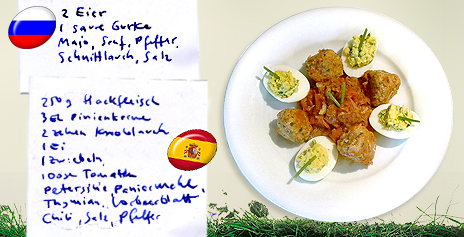 2 Eier
1 saure Gurke
Majo, Senf, Pfeffer,
Schnittlauch, Salz
250g Hackfleisch
3 EL Pinienkerne
2 Zehen Knoblauch
1 Ei
1 Zwiebeln
100g Tomaten
Petersilie, Paniermehl,
Thymian, Lorbeerblatt
Chili, Salz, Pfeffer